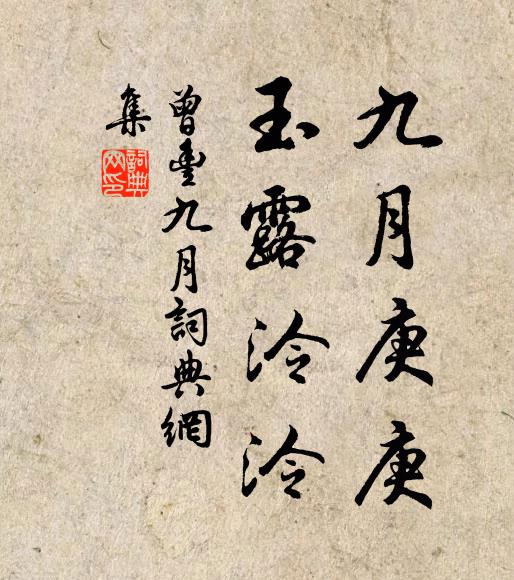 九月庚庚
玉露泠泠
曾豐九月詞典網
集
詞典網印